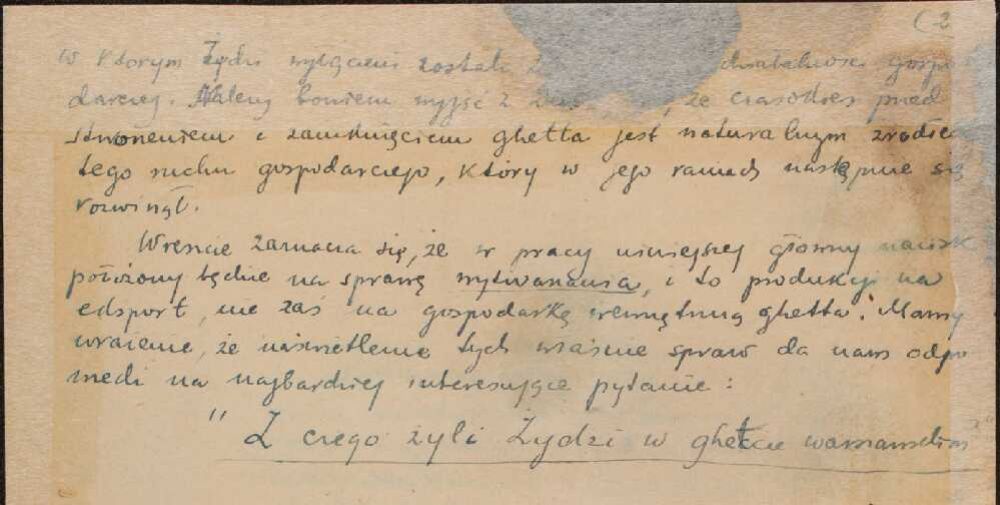 (2
w którym Żydzi wyłączeni zostali z działalności gospo
darczej. Należy bowiem wyjść z że czasokres przed
stworzeniem i zamknięciem ghetta jest naturalnym źródłe
tego ruchu gospodarczego, który w jego ramach następnie się
rozwinął.
Wreszcie zaznacza się, że w pracy niniejszej główny nacisk
położony będzie na sprawę wytwarzania, i to produkcji na
eksport, nie zaś na gospodarkę wewnętrzną ghetta. Mamy
wrażenie, że naświetlenie tych właśnie spraw da nam odpo
wiedź na najbardziej interesujące pytanie:
"Z czego żyli Żydzi w ghetcie warszawskim